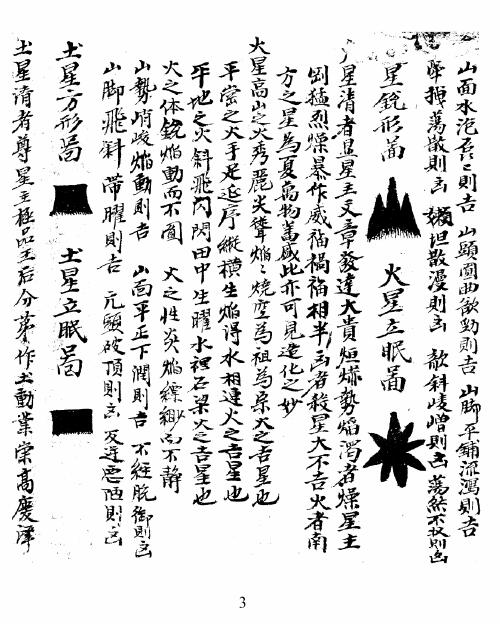 山面水泡㕵㕵則吉 山顕圓曲欹動則吉 山脚平鋪流瀉則吉
牽拽蕩散則凶 嬾坦散漫則凶 欹斜崚嶒則凶 蕩然不收則凶
星銳形啚 火星立眠啚
星清者 星主文章發達大貴烜㷀勢焰濁者燥星主
剛猛烈燥暴作威福禍福相半凶者殺星大不吉火者南
方之星為夏萬物蕃盛此亦可見造化之妙
火星高山之火秀麗火聳焰焰燒空為祖為宗火之吉星也
平崗之火手足延序縱橫生焰得水相連火之吉星也
平地之火斜飛閃閃田中生曜水裡石梁火之吉星也
火之体銳焰動而不圓 火之性炎焰縹緲而不靜
山勢峭峻焰動則吉 山面平正下濶則吉 不經脫御則凶
山脚飛斜帶曜則吉 亢頭破頂則凶 反逆惡陋則凶
土星方形啚 土星立眠啚
土星清者尊星主極品王后分茅作土勳業崇高慶澤
3